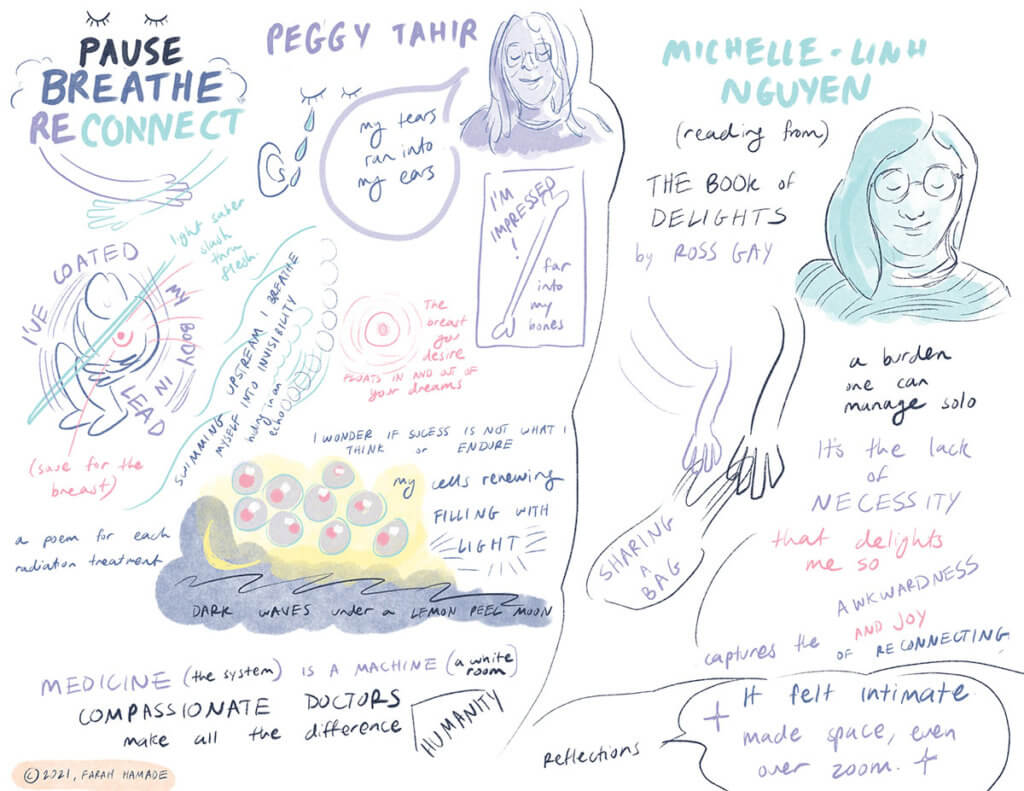 PAUSE
BREATHE
RECONNECT
PEGGY TAHIR
my tears
ran into
my ears
I'M
IMPRESSED
!
far
into
my
bones
light saber
slash
thru
flesh.
I'VE COATED
MY BODY IN
LEAD
(save for the
breast)
SWIMMING UPSTREAM I BREATHE
MYSELF INTO INVISIBILITY
hiding in an
echo
The
breast
you
desire
FLOATS IN AND OUT OF
your dreams
a poem for each
radiation treatment
I WONDER IF SUCESS IS NOT WHAT I
THINK or ENDURE
my cells renewing
FILLING WITH
LIGHT
DARK WAVES under a LEMON PEEL MOON
MEDICINE (the system) IS A MACHINE (a white
room)
COMPASSIONATE DOCTORS
make all the difference
HUMANITY
© 2021, FARAH HAMADE
MICHELLE-LINH
NGUYEN
(reading from)
THE BOOK of
DELIGHTS
by ROSS GAY
a burden
one can
manage solo
SHARING
A
BAG
It's the lack
of
NECESSITY
that delights
me so
captures the AWKWARDNESS
AND JOY
OF RECONNECTING
Reflections
It felt intimate
made space, even
over zoom.